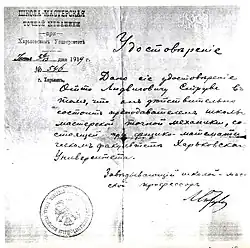 ШКОЛА-МАСТЕРСКАЯ
ТОЧНОЙ МЕХАНИКИ
при
Харьковскомъ Университетѣ
дня 1919 г.
№ 540
г. Харьковъ.
Удостовѣреніе
Дано сіе удостовѣреніе
Отто Людвиговичу Струве въ
томъ, что онъ дѣйствительно
состоитъ преподавателемъ школы
мастерской точной механики, со-
стоящей при физико-математи-
ческомъ факультетѣ Харьковскаго
Университета.
Завѣдывающій школой-мастер-
ской профессоръ